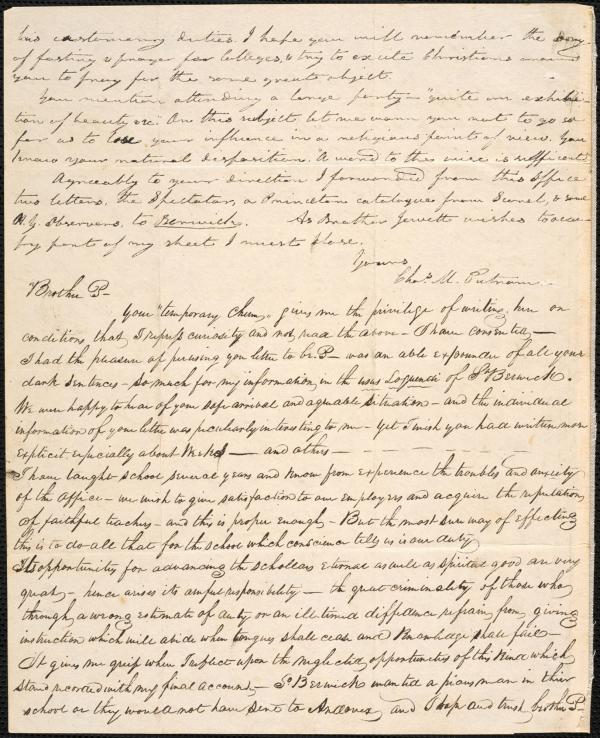 his customary duties. I hope you will remember the day
of fasting & prayer for Colleges, & try to excite Christians around
you to pray for the same great object.
You mention attending a large party - "quite an exhibi-
tion of beauty &c: On this subject let me warn you not to go so
far as to lose your influence in a religious point of view. You
know your natural disposition. "A word to the wise is sufficient.
Agreeably to your direction I forwarded from this office
two letters, the Spectator, a Princeton catalogue from Scovel, & some
N.Y. Observers, to Berwick. As Brother Jewett wishes to occu-
py part of my sheet I must close.
Yours
Chas. M. Putnam.
Brother P-
Your "temporary Chum," gives me the privilege of writing here on
conditions that I repress curiosity and not read the above - I have consented -
I had the pleasure of perusing your letter to br. P- was an able expounder of all your
dark sentences - so much for my information, in the usus Loquendi of S. Berwick.
We were happy to hear of your safe arrival and agreeable situation - and the individual
information of your letter was peculiarly interesting to me - yet I wish you had written more
explicit especially about - and others -
I have taught school several years and know from experience the troubles and anxiety
of the office - we wish to give satisfaction to our employers and acquire the reputation
of faithful teachers - and this is proper enough - But the most sure way of effecting
this is to do all that for the school which conscience tells us is our duty
Its opportunities for advancing the scholars eternal as well as spiritual good are very
great - hence arises its awful responsibility - the great criminality of those who
through a wrong estimate of duty or an ill-timed diffidence refrain from giving
instruction which will abide when tongues shall cease and Knowledge shall fail -
It gives me grief when I reflect upon the neglected opportunities of this kind which
stand recorded with my final account - So. Berwick wanted a pious man in their
school or they would not have sent to Andover, and I hope and trust brother P-